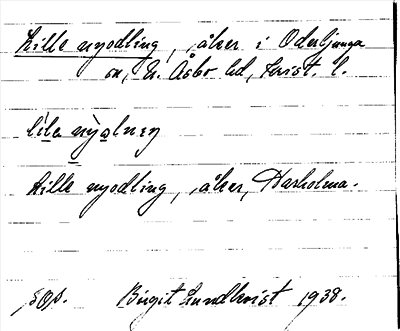 Lille nyodling, åker i Oderljunga
sn, N. Åsbo hd, Krist. l.
lila nyalnıŋ
Lille nyodling, åker, Harholma.
sOs. Birgit Lundkvist 1938.